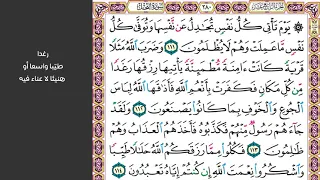 ٢٨٠
يَوْمَ تَأْتِي كُلُّ نَفْسٍ تُجَٰدِلُ عَن نَّفْسِهَا وَتُوَفَّىٰ كُلُّ
نَفْسٍ مَّا عَمِلَتْ وَهُمْ لَا يُظْلَمُونَ ١١١ وَضَرَبَ ٱللَّهُ مَثَلًا
قَرْيَةً كَانَتْ ءَامِنَةً مُّطْمَئِنَّةً يَأْتِيهَا رِزْقُهَا رَغَدًا
مِّن كُلِّ مَكَانٍ فَكَفَرَتْ بِأَنْعُمِ ٱللَّهِ فَأَذَٰقَهَا ٱللَّهُ لِبَاسَ
ٱلْجُوعِ وَٱلْخَوْفِ بِمَا كَانُوا۟ يَصْنَعُونَ ١١٢ وَلَقَدْ
جَآءَهُمْ رَسُولٌ مِّنْهُمْ فَكَذَّبُوهُ فَأَخَذَهُمُ ٱلْعَذَابُ وَهُمْ
ظَٰلِمُونَ ١١٣ فَكُلُوا۟ مِمَّا رَزَقَكُمُ ٱللَّهُ حَلَٰلًا طَيِّبًا
وَٱشْكُرُوا۟ نِعْمَتَ ٱللَّهِ إِن كُنتُمْ إِيَّاهُ تَعْبُدُونَ ١١٤
رغدا
طيبا واسعا أو
هنيئا لا عناء فيه